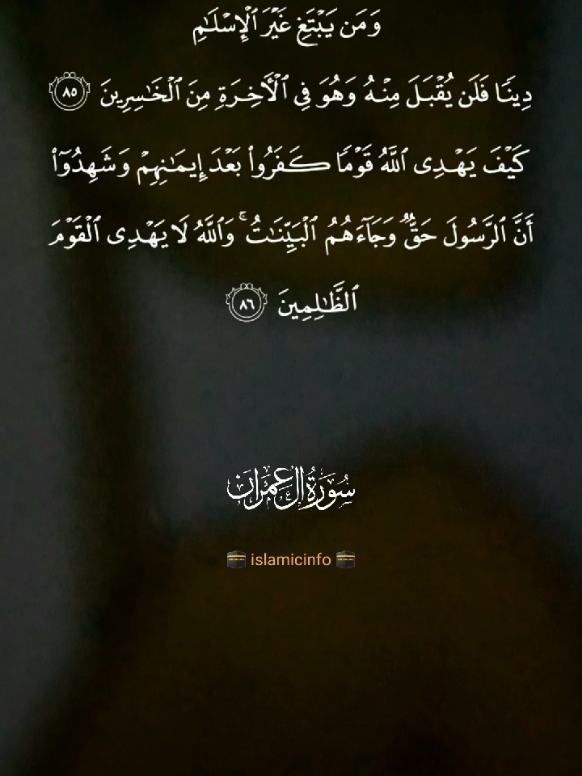 وَمَن يَبْتَغِ غَيْرَ ٱلْإِسْلَـٰمِ
دِينًا فَلَن يُقْبَلَ مِنْهُ وَهُوَ فِى ٱلْـَٔاخِرَةِ مِنَ ٱلْخَـٰسِرِينَ ٨٥
كَيْفَ يَهْدِى ٱللَّهُ قَوْمًا كَفَرُوا۟ بَعْدَ إِيمَـٰنِهِمْ وَشَهِدُوٓا۟
أَنَّ ٱلرَّسُولَ حَقٌّ وَجَآءَهُمُ ٱلْبَيِّنَـٰتُ ۚ وَٱللَّهُ لَا يَهْدِى ٱلْقَوْمَ
ٱلظَّـٰلِمِينَ ٨٦
سُورَةُ آلِ عِمْرَان
🕋 islamicinfo 🕋